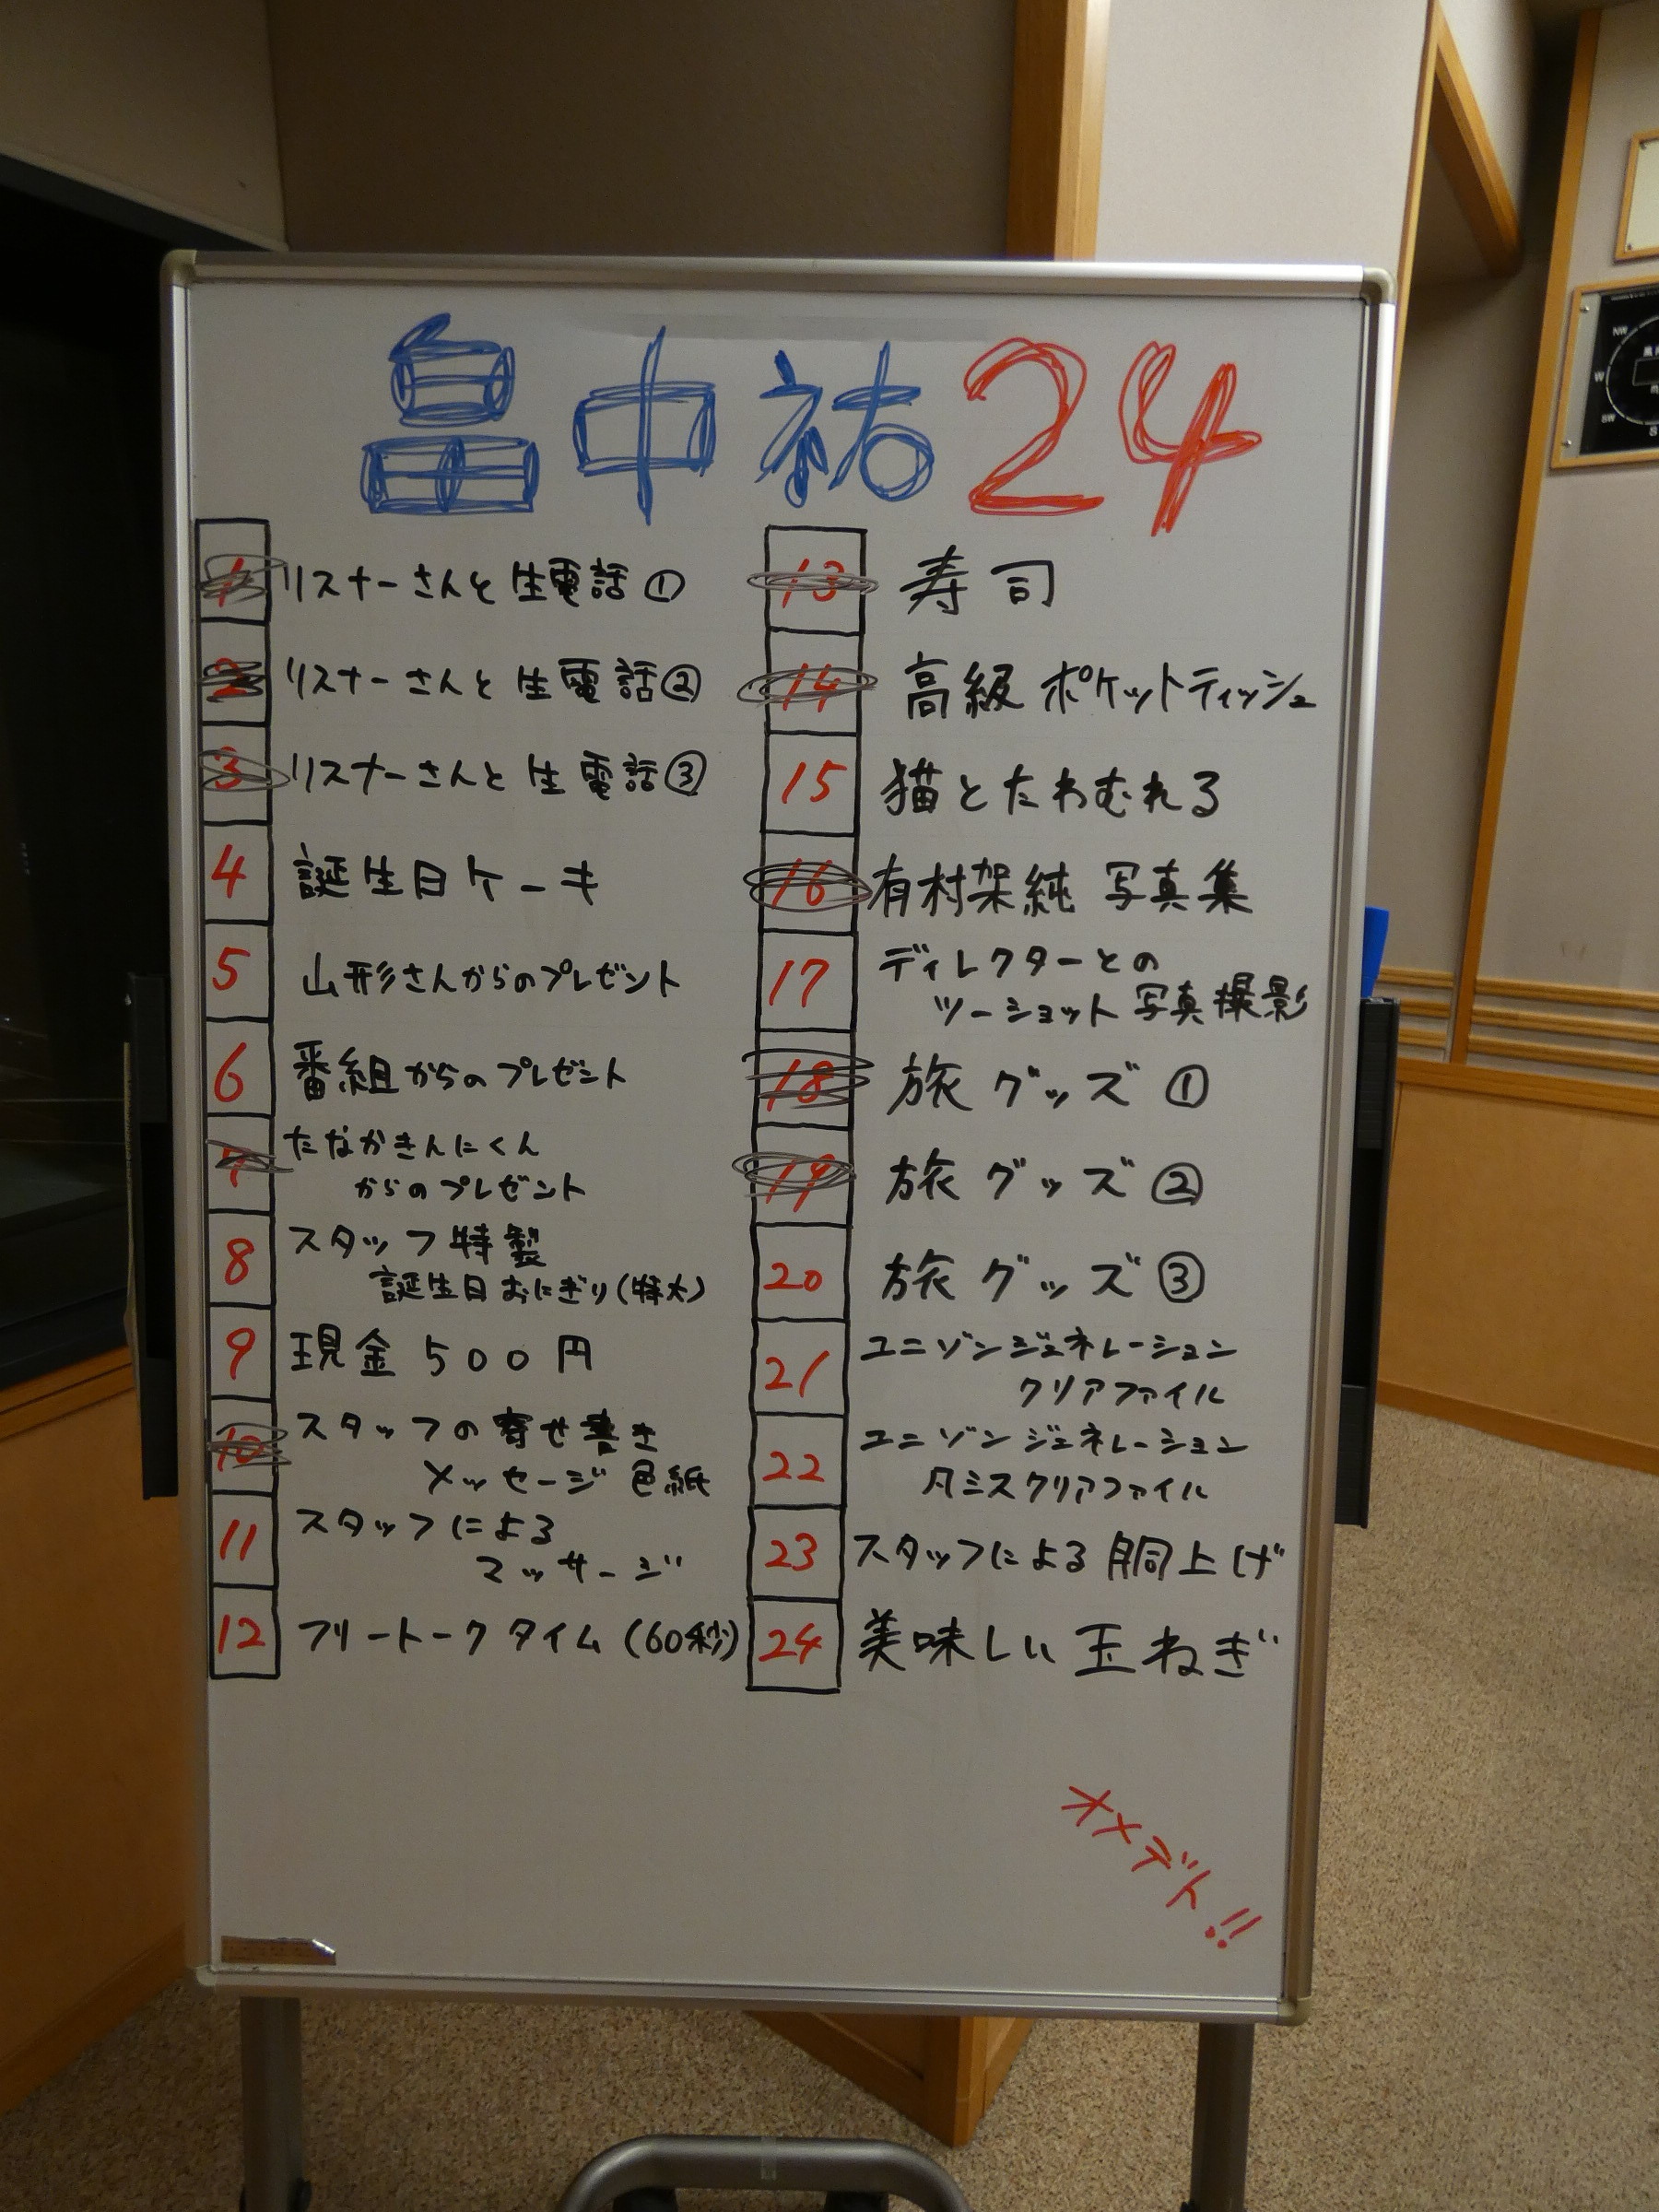 畠中祐24
1 リスナーさんと生電話①
2 リスナーさんと生電話②
3 リスナーさんと生電話③
4 誕生日ケーキ
5 山形さんからのプレゼント
6 番組からのプレゼント
7 たなかきんにくん
からのプレゼント
8 スタッフ特製
誕生日おにぎり(特大)
9 現金500円
10 スタッフの寄せ書き
メッセージ色紙
11 スタッフによる
マッサージ
12 フリートークタイム(60秒)
13 寿司
14 高級ポケットティッシュ
15 猫とたわむれる
16 有村架純 写真集
17 ディレクターとの
ツーショット写真撮影
18 旅グッズ①
19 旅グッズ②
20 旅グッズ③
21 ユニゾンジェネレーション
クリアファイル
22 ユニゾンジェネレーション
凡ミスクリアファイル
23 スタッフによる胴上げ
24 美味しい玉ねぎ
オメデト!!
NW
W
SW
S